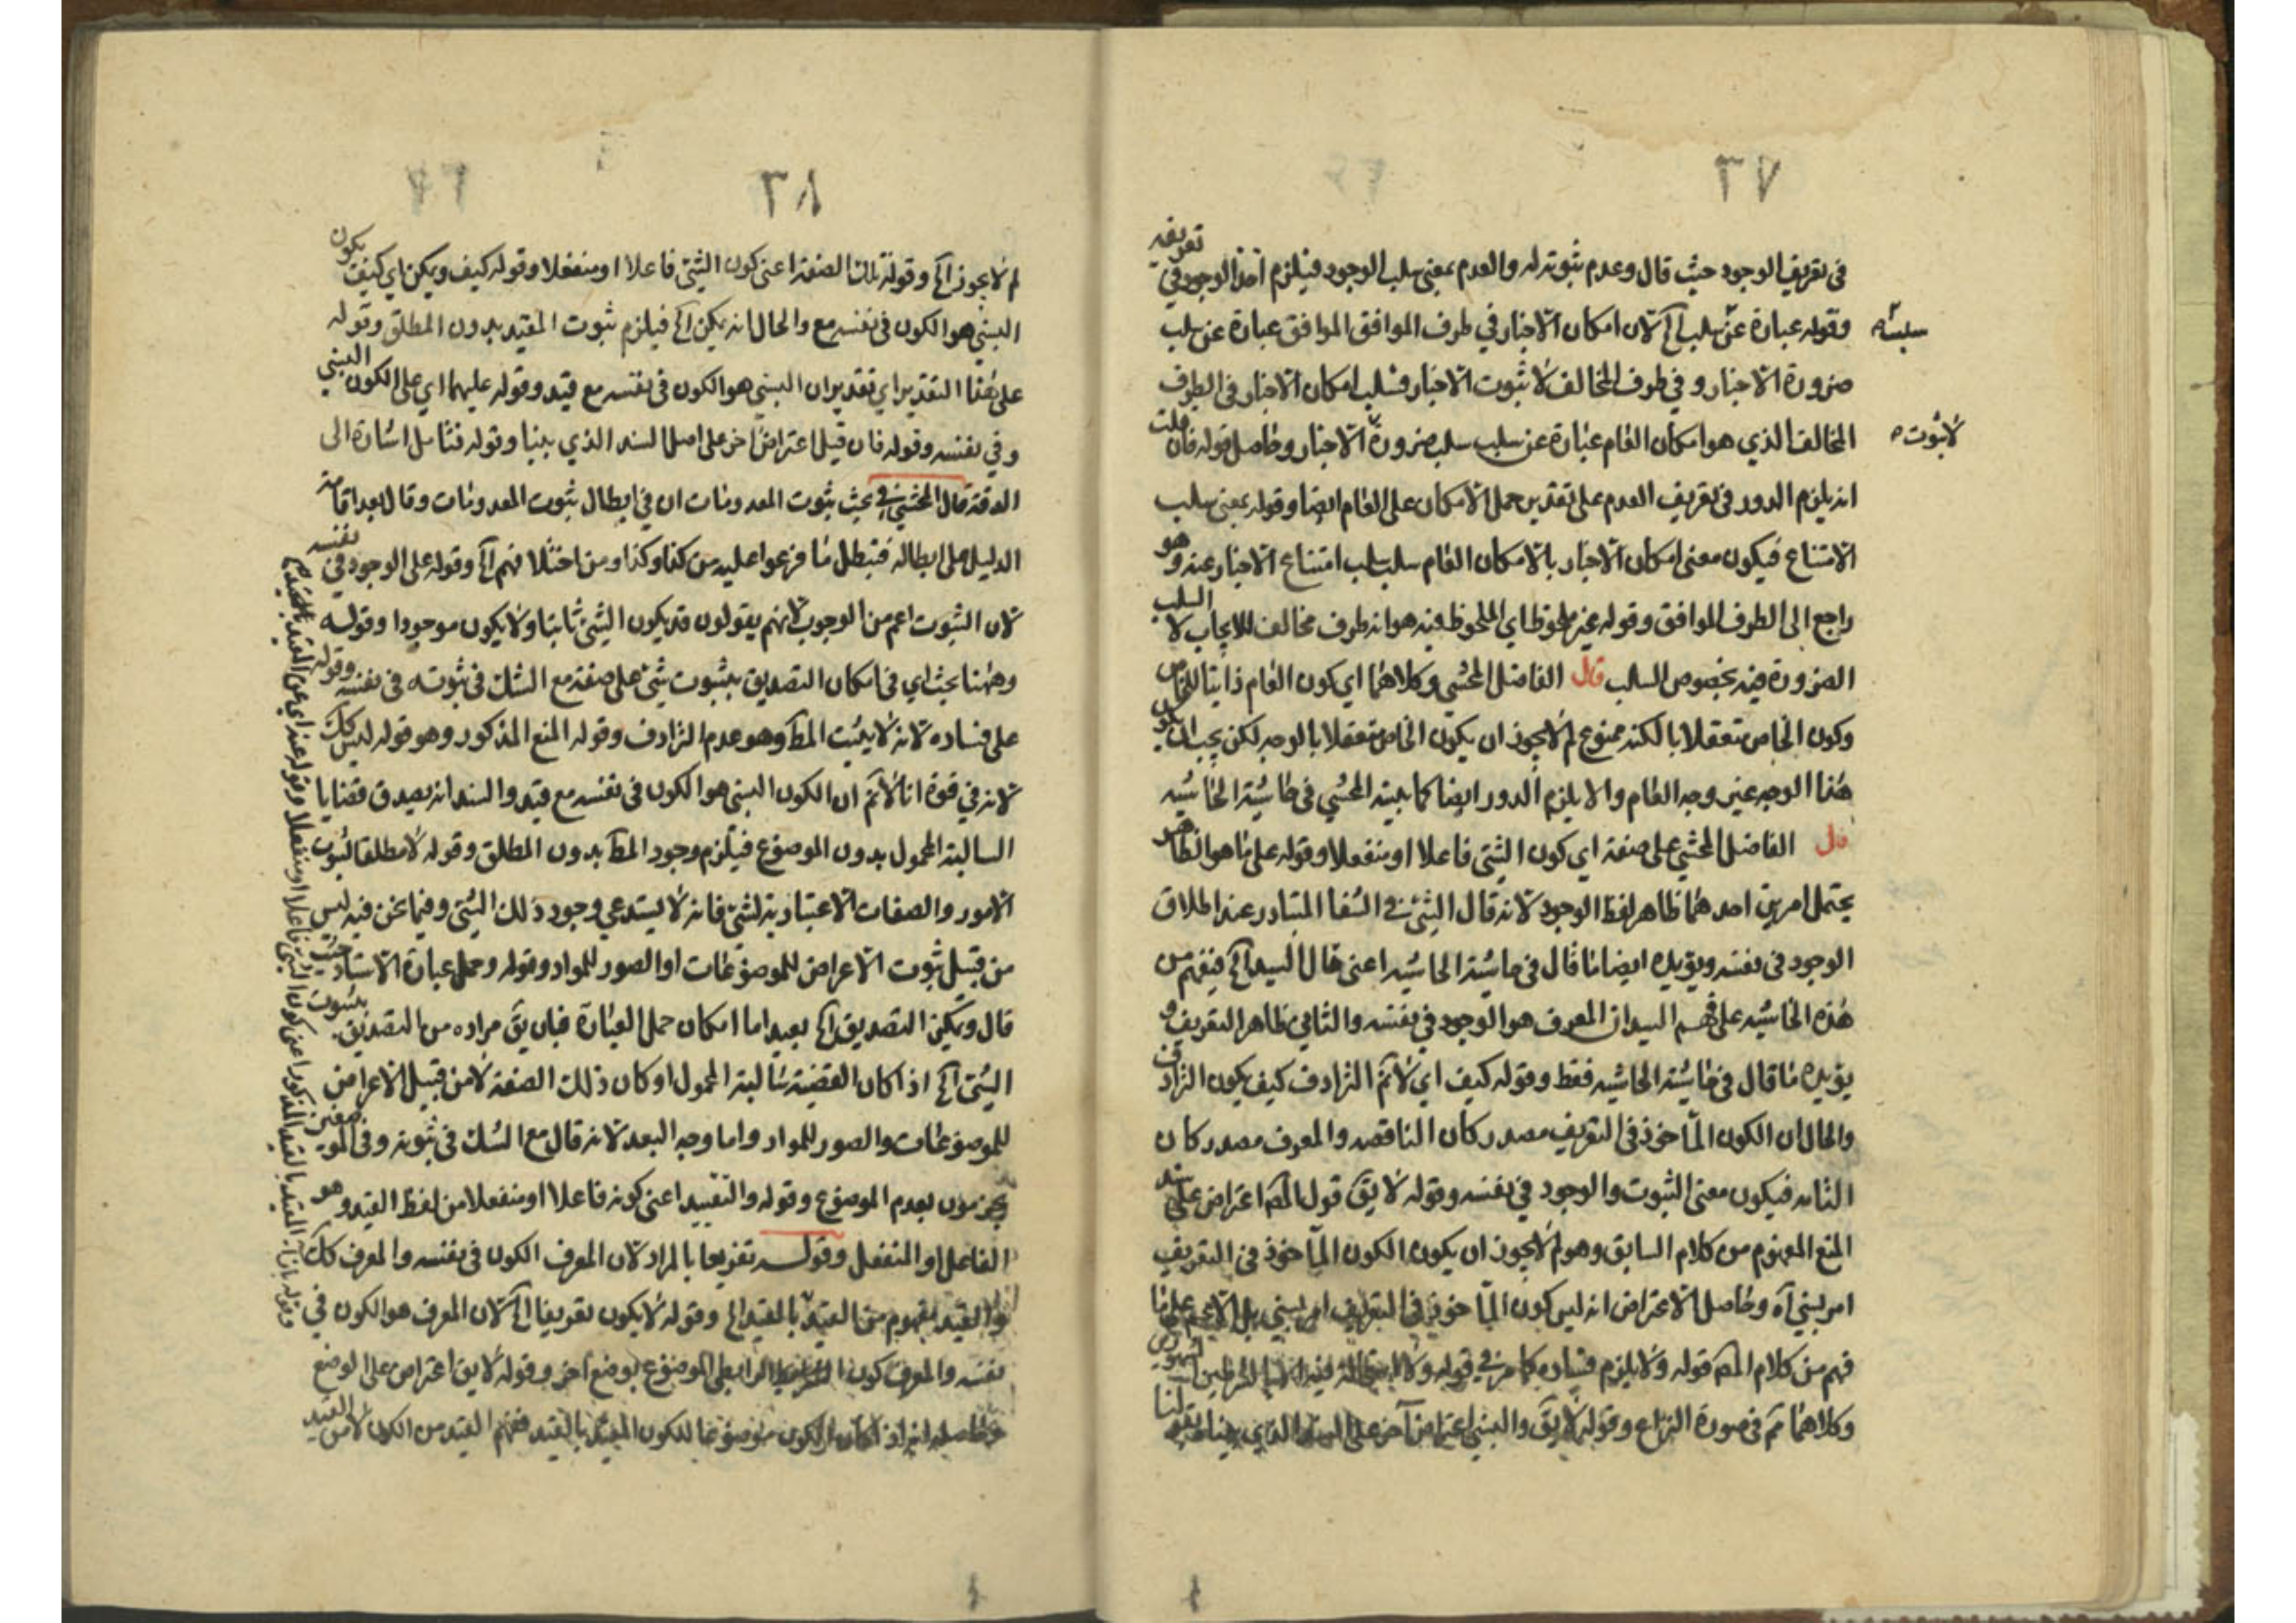 ٣٧
في تعريف الوجود حيث قال وعدم ثبوته له والعدم بمعنى سلب الوجود فيلزم اخذ الوجود في تعريفه
وقوله عبارة عن سلب الخ لان امكان الاخبار في طرف الموافق الموافق عبارة عن سلب
ضرورة الاخبار و في طرف المخالف لا ثبوت الاخبار فسلب امكان الاخبار في الطرف
المخالف الذي هو امكان العام عبارة عن سلب سلب ضرورة الاخبار وحاصل قوله فان قلت
انه يلزم الدور في تعريف العدم على تقدير حمل الامكان على العام ايضا وقوله بمعنى سلب
الامتناع فيكون معنى امكان الاخبار بالامكان العام سلب سلب امتناع الاخبار عنه وهو
راجع الى الطرف الموافق وقوله غير ملحوظ اي الملحوظ فيه هو انه طرف مخالف للايجاب لا السلب
الضرورة فيه بخصوص السلب قال الفاضل المحشي وكلاهما اي كون العام ذاتيا للخاص
وكون الخاص متعقلا بالكنه ممنوع لم لا يجوز ان يكون الخاص متعقلا بالوجه لكن يجب ان يكون
هذا الوجه غير وجه العام والا يلزم الدور ايضا كما بينه المحشي في حاشية الحاشيه
قال الفاضل المحشي على صفة اي كون الشئ فاعلا او منفعلا وقوله على ما هو الظاهر
يحتمل امرين احدهما ظاهر لفظ الوجود لانه قال الشئ في الشفا المتبادر عند اطلاق
الوجود في نفسه ويؤيده ايضا ما قال في حاشية الحاشيه اعني قال السيد الخ فيفهم من
هذه الحاشيه على فهم السيد ان المعرف هو الوجود في نفسه والثاني ظاهر التعريف و
يؤيده ما قال في حاشية الحاشيه فقط وقوله كيف اي لا نم الترادف كيف يكون الترادف
والحال ان الكون المأخوذ في التعريف مصدر كان الناقصه والمعرف مصدر كان
التامه فيكون معنى الثبوت والوجود في نفسه وقوله لا يق قول المص اعتراض على سند
المنع المفهوم من كلام السابق وهو لم لا يجوز ان يكون الكون المأخوذ في التعريف
امر نسبي آه وحاصل الاعتراض انه ليس كون المأخوذ في التعريف امر نسبي بل الاعم على ما
فهم من كلام المص قوله ولا يلزم فساده كما مر في قوله ولا
وكلاهما نم في صورة النزاع وقوله لا يق والنسبي اعتراض آخر على السند الذي
سلب
لا ثبوت
٣٨
لم لا يجوز الخ وقوله تلك الصفة اعني كون الشئ فاعلا او منفعلا وقوله كيف ويكن اي كيف يكون
النسبي هو الكون في نفسه مع والحال انه يكن الخ فيلزم ثبوت المقيد بدون المطلق وقوله
على هذا التقدير اي تقدير ان النسبي هو الكون في نفسه مع قيد وقوله عليهما اي على الكون النسبي
وفي نفسه وقوله فان قيل اعتراض آخر على اصل السند الذي بينا وقوله فتامل اشارة الى
الدقة قال المحشي في بحث ثبوت المعدومات ان في ابطال ثبوت المعدومات وقال بعد اقامة
الدليل على ابطاله فتبطل ما فرعوا عليه من كذا وكذا ومن اختلافهم الخ وقوله على الوجود في نفسه
لان الثبوت اعم من الوجود لانهم يقولون قد يكون الشئ ثابتا ولا يكون موجودا وقوله
وههنا بحث اي في امكان التصديق بثبوت شئ على صفة مع الشك في ثبوته في نفسه وقوله
على فساده لانه لا يثبت المط وهو عدم الترادف وقوله المنع المذكور وهو قوله ليس كك
لانه في قوة انا لا نم ان الكون النسبي هو الكون في نفسه مع قيد والسند انه يصدق قضايا
السالبة المحمول بدون الموضوع فيلزم وجود المط بدون المطلق وقوله لا مطلقا لثبوت
الامور والصفات الاعتبارية لشئ فانه لا يستدعي وجود ذلك الشئ وفيما نحن فيه ليس
من قبيل ثبوت الاعراض للموضوعات او الصور للمواد وقوله وحمل عبارة الاستاد حيث
قال ويمكن التصديق الخ بعيد اما امكان حمل العبارة فبان يق مراده من التصديق بثبوت
الشئ الخ اذا كان القضية سالبة المحمول او كان ذلك الصفة لا من قبيل الاعراض
للموضوعات والصور للمواد واما وجه البعد لانه قال مع الشك في ثبوته وفي
يجزمون بعدم الموضوع وقوله والتقييد اعني كونه فاعلا او منفعلا من لفظ القيد وهو
الفاعل او المنفعل وقوله تفريعا بالمراد لان المعرف الكون في نفسه والمعرف كك
والقيد مفهوم من القيد بالمقيد الخ وقوله لا يكون تعريفا الخ لان المعرف هو الكون في
نفسه والمعرف كون الرابطي الموضوع بوضع آخر وقوله لا يق اعتراض على الوضع
وحاصله انه اذا كان الكون موضوعا للكون المقيد بالقيد ففهم القيد من الكون لا من القيد